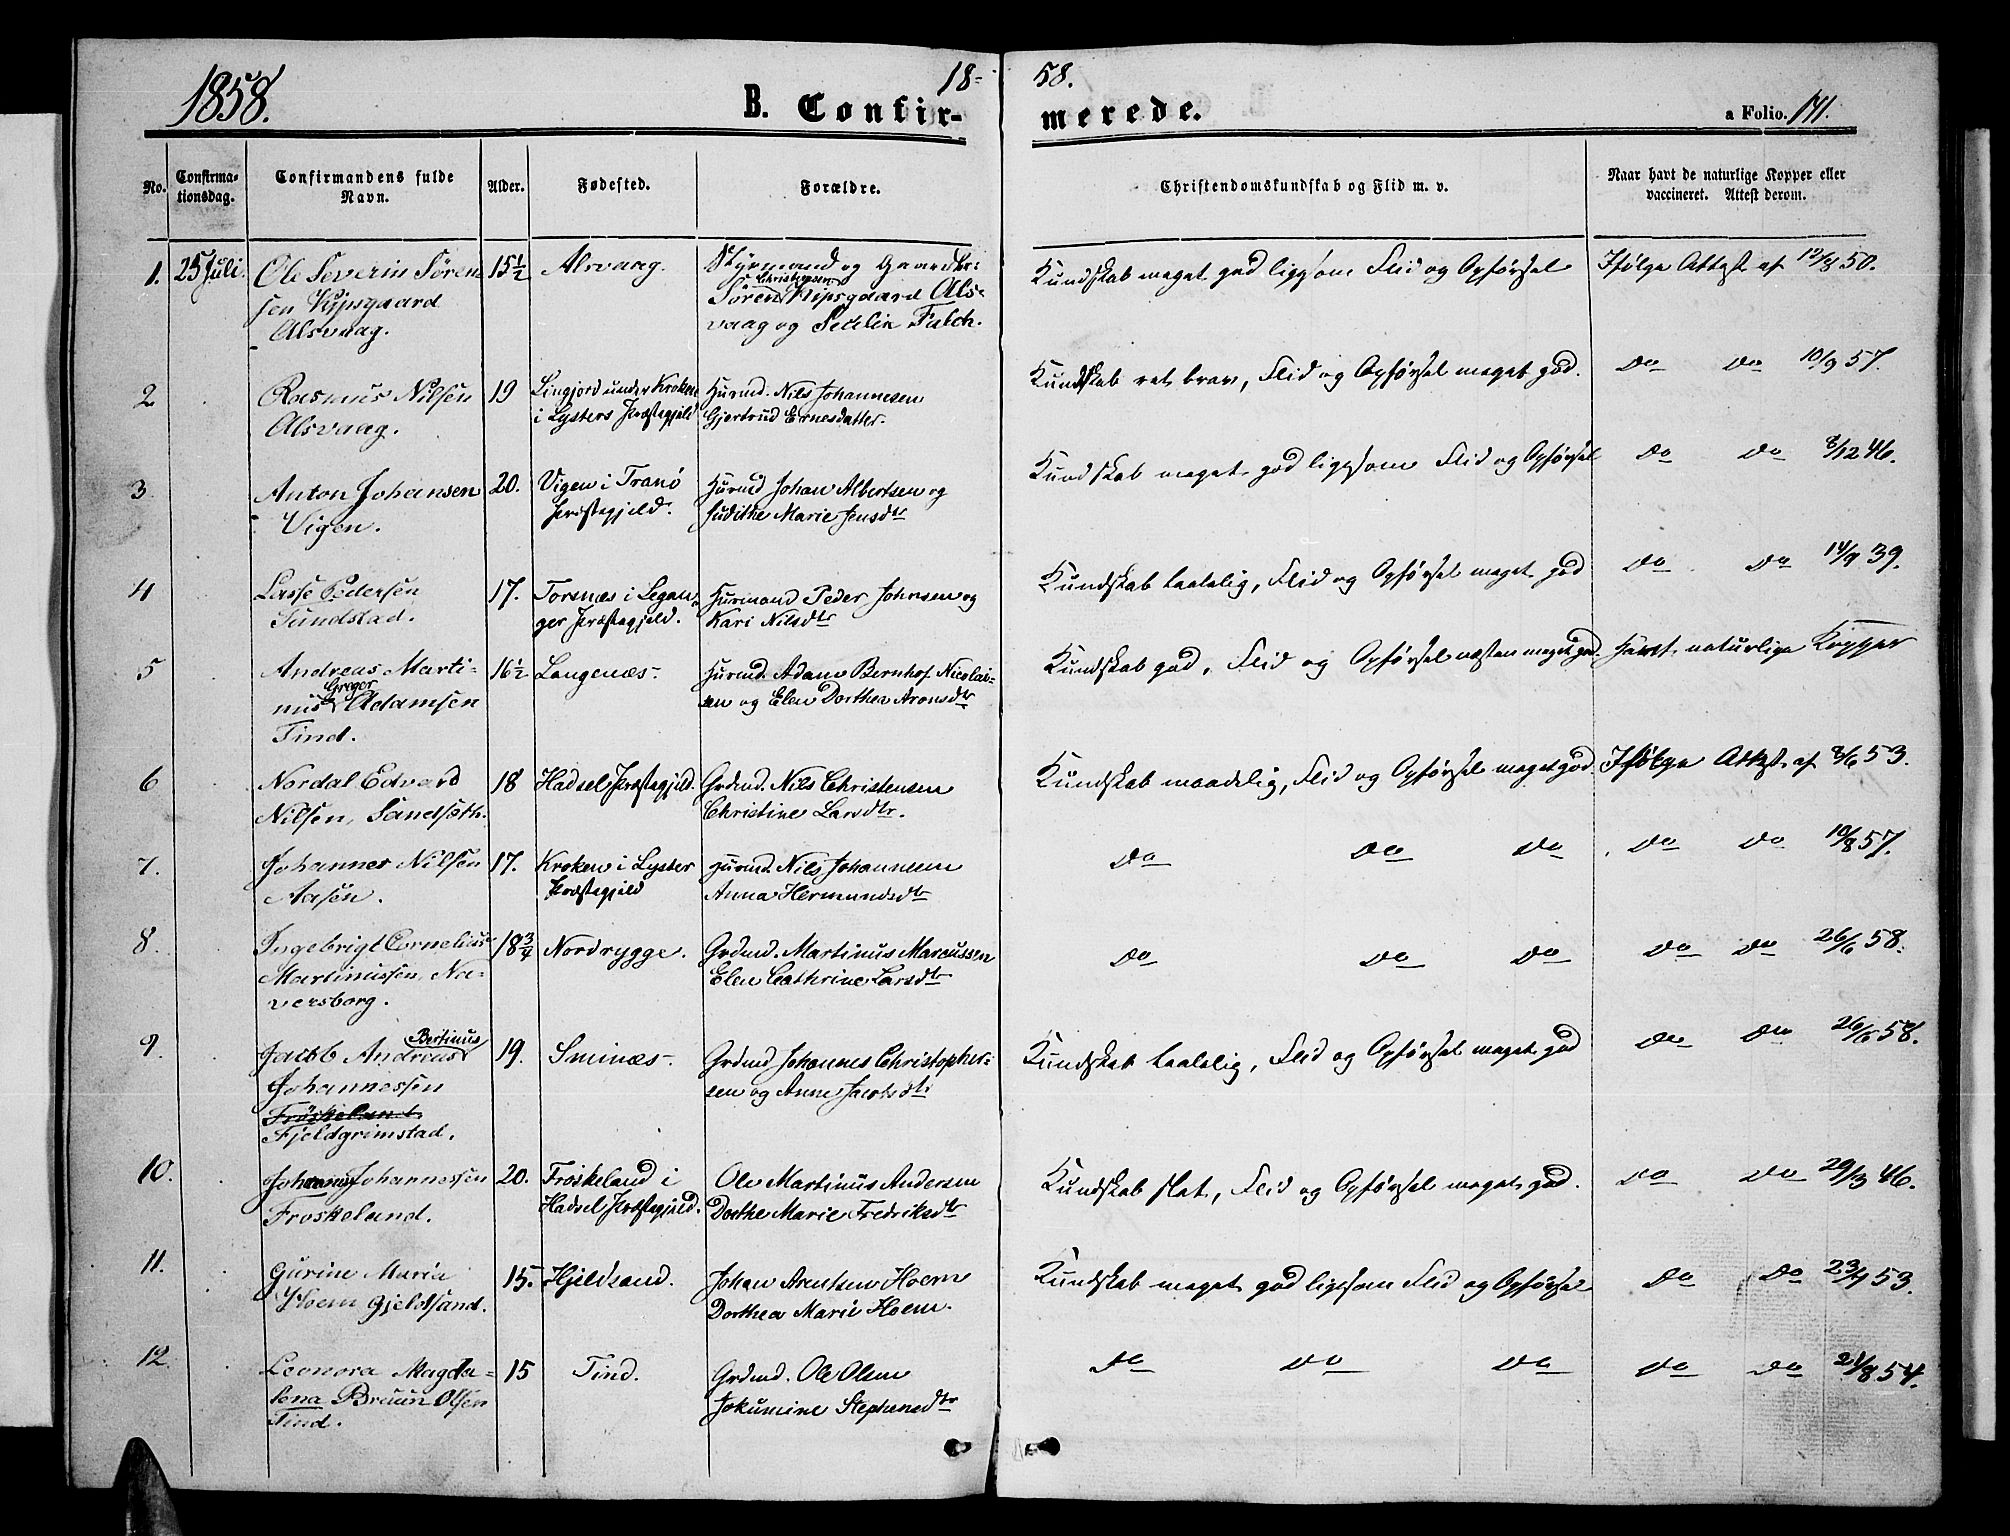 1858.
18-
58.
B. Confir-
merede.
a Folio. 141.
No.
Confirma-
tionsdag.
Confirmandens fulde
Navn.
Alder.
Fødested.
Forældre.
Christendomskundskab og Flid m. v.
Naar havt de naturlige Kopper eller
vaccineret. Attest derom.
1. 25 Juli. Ole Severin Søren 15 1/2 Alsvaag. Styrmand og Gaardbr:
sen Kypsgaard
Alsvaag.
Christian
Søren Kipsgaard Als-
vaag og Sedelin Falch.
Kundskab meget god ligesom Flid og Opførsel Ifølge Attest af 12/8 50.
2 Rasmus Nilsen 19
Alsvaag.
Lingjord under Kroken
i Lysters Præstegjeld
Husmd. Nils Johannesen
Gjertrud Ernesdatter.
Kundskab ret brav, Flid og Opførsel meget god. Do Do 10/9 57.
3. Anton Johansen 20.
Vigen.
Vigen i Tranö
Præstegjeld.
Husmd Johan Albertsen og
Judithe Marie Jensdtr
Kundskab meget god ligesom Flid og Opførsel Do Do 8/12 46.
4 Lasse Pedersen 17.
Tundstad.
Torsnæs i Legan-
ger Præstegjeld.
Husmand Peder Johnsen og
Kari Nilsdtr
Kundskab taalelig, Flid og Opførsel meget god Do Do 14/9 39.
5 Andreas Marti- 16 1/2 Langenæs-
Greger
nus Adamsen
Tind.
Husmd. Adam Bernhof Nicolai-
sen og Elen Dorthea Aronsdtr
Kundskab god, Flid og Opførsel næsten meget god. Havt naturlige Kopper
6 Nordal Edvard 18 Hadsel Præstegjeld.
Nilsen, Sandsæth.
Grdmd. Nils Christensen
Christine Larsdtr.
Kundskab maadelig, Flid og Opførsel meget god. Ifølge Attest af 8/6 53.
7. Johannes Nilsen 17.
Aasen.
Kroken i Lyster
Præstegjeld
Husmd. Nils Johannesen
Anna Hermundsdtr
Do Do Do Do Do 10/8 57.
8. Ingebrigt Cornelius 18 3/4 Nordrygge.
Martinussen, Na-
versborg.
Grdmd. Martinus Marcussen
Elen Cathrine Larsdtr
Do Do Do Do Do 26/6 58.
9. Bertinus
Jacob Andreas 19. Sminæs-
Johannessen
Fröskeland,
Fjeldgrimstad.
Grdmd Johannes Christopher-
sen og Anne Jacobsdtr
Kundskab taalelig, Flid og Opførsel meget god Do Do 26/6 58.
10. Johannes Johannessen 20.
Froskeland.
Fröskeland i
Hadsel Præstegjeld.
Ole Martinus Andersen
Dorthe Marie Fredriksdtr
Kundskab slet, Flid og Opførsel meget god. Do Do 29/3 46.
11. Gurine Maria 15. Hjeldsand.
Hoem Gjeldsand.
Johan Arentsen Hoem
Dorthea Marie Hoem.
Kundskab meget god ligesom Flid og Opførsel Do Do 23/7 53.
12. Leonora Magda- 15 Tind.
lena Bruun Olsen
Tind.
Grdmd. Ole Olsen
Jokumine Stephensdtr
Do Do Do Do Do 21/8 54.